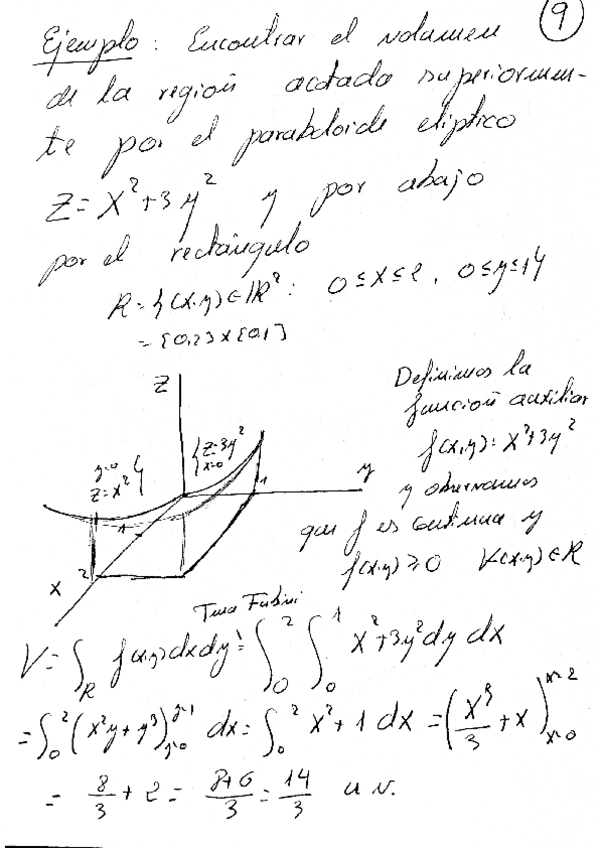 9
Ejemplo: Encontrar el volumen
de la región acotada superiormen-
te por el paraboloide elíptico
Z = X² + 3y² y por abajo
por el rectángulo
R = {(x,y) ∈ ℝ² : 0 ≤ X ≤ 2, 0 ≤ y ≤ 1}
= [0,2] × [0,1]
Z
y=0
z=x² }
{ z=3y²
x=0
y
1
1
2
X
Definimos la
función auxiliar
f(x,y) = X² + 3y²
y observamos
que f es continua y
f(x,y) ≥ 0 ∀(x,y) ∈ R
Tma Fubini
V = ∫_R f(x,y) dx dy = ∫₀² ∫₀¹ x² + 3y² dy dx
= ∫₀² (x²y + y³)_{y=0}^{y=1} dx = ∫₀² x² + 1 dx = (x³/3 + x)_{x=0}^{x=2}
= 8/3 + 2 = (8+6)/3 = 14/3 u.v.